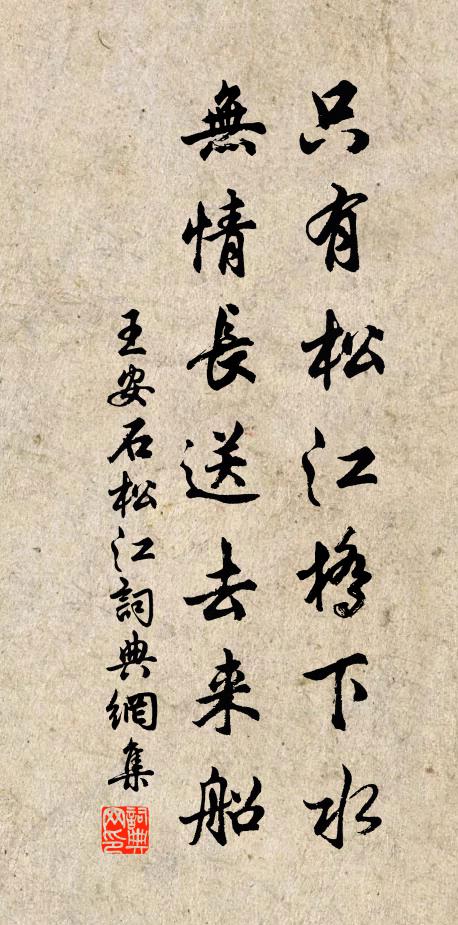 只有松江橋下水
無情長送去来船
王安石松江詞典網集
詞典
网印